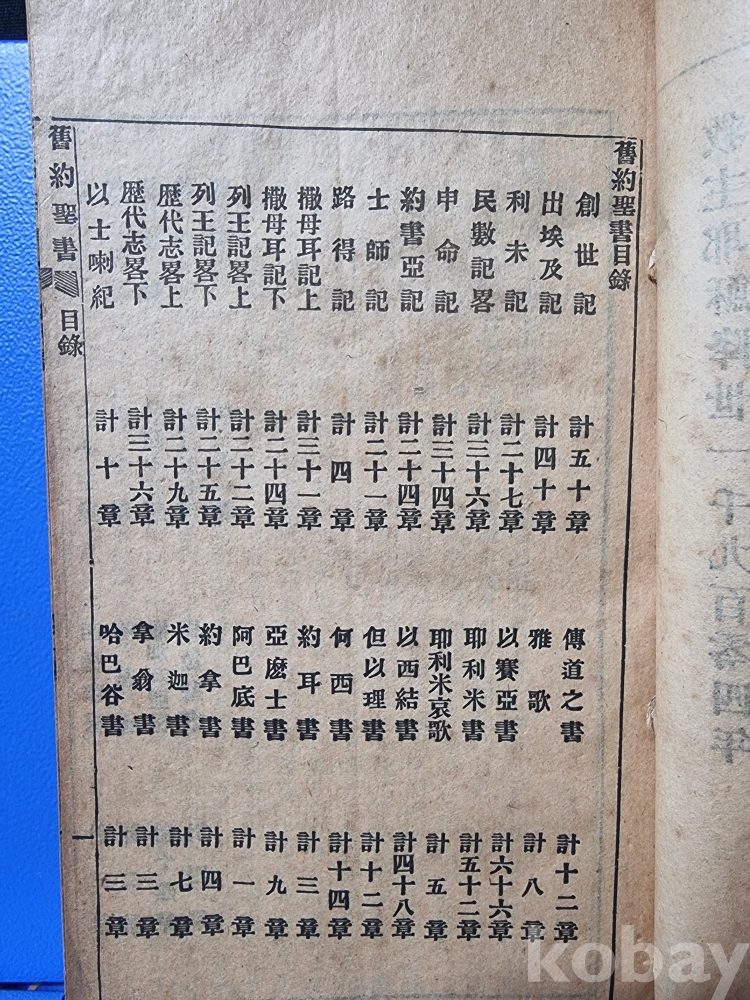 救主耶穌降世一千九百零四年
舊約聖書目錄
創世記 計五十章
出埃及記 計四十章
利未記 計二十七章
民數記畧 計三十六章
申命記 計三十四章
約書亞記 計二十四章
士師記 計二十一章
路得記 計四章
撒母耳記上 計三十一章
撒母耳記下 計二十四章
列王記畧上 計二十二章
列王記畧下 計二十五章
歷代志畧上 計二十九章
歷代志畧下 計三十六章
以士喇紀 計十章
傳道之書 計十二章
雅歌 計八章
以賽亞書 計六十六章
耶利米書 計五十二章
耶利米哀歌 計五章
以西結書 計四十八章
但以理書 計十二章
何西書 計十四章
約耳書 計三章
亞麼士書 計九章
阿巴底書 計一章
約拿書 計四章
米迦書 計七章
拿翁書 計三章
哈巴谷書 計三章
舊約聖書 目錄 一
kobay